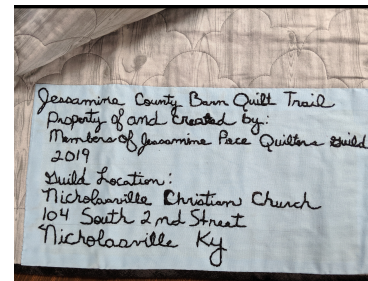 Jessamine County Barn Quilt Trail
Property of and created by:
Members of Jessamine Pace Quilters Guild
2019
Guild Location:
Nicholasville Christian Church
104 South 2nd Street
Nicholasville Ky